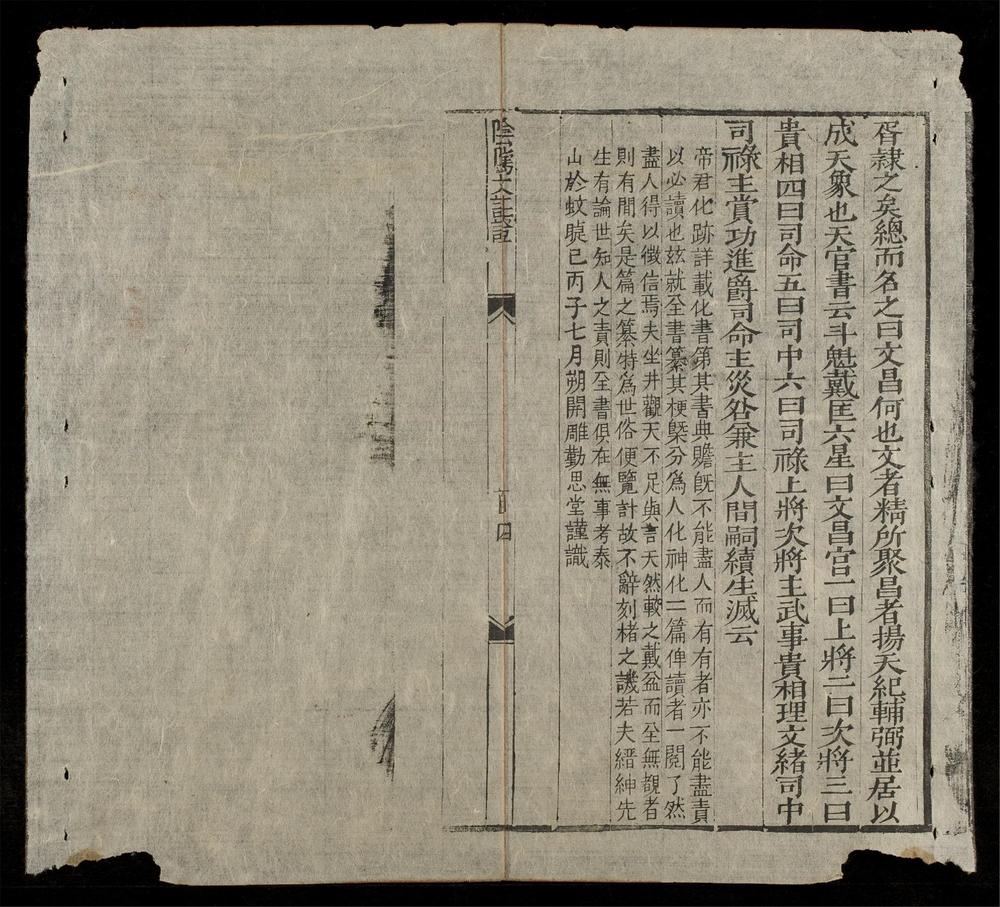 胥隷之矣總而名之曰文昌何也文者精所聚昌者揚天紀輔弼並居以
成天象也天官書云斗魁戴匡六星曰文昌宮一曰上將二曰次將三曰
貴相四曰司命五曰司中六曰司祿上將次將主武事貴相理文緒司中
司祿主賞功進爵司命主災咎兼主人間嗣續生滅云
帝君化跡詳載化書第其書典贍旣不能盡人而有有者亦不能盡責
以必讀也玆就全書纂其梗槩分爲人化神化二篇俾讀者一閱了然
盡人得以徵信焉夫坐井觀天不足與言天然較之戴盆而全無覩者
則有間矣是篇之纂特爲世俗便覽計故不辭刻楮之譏若夫縉紳先
生有論世知人之責則全書俱在無事考泰
山於蚊睫已丙子七月朔開雕勤思堂謹識
陰騭文註證